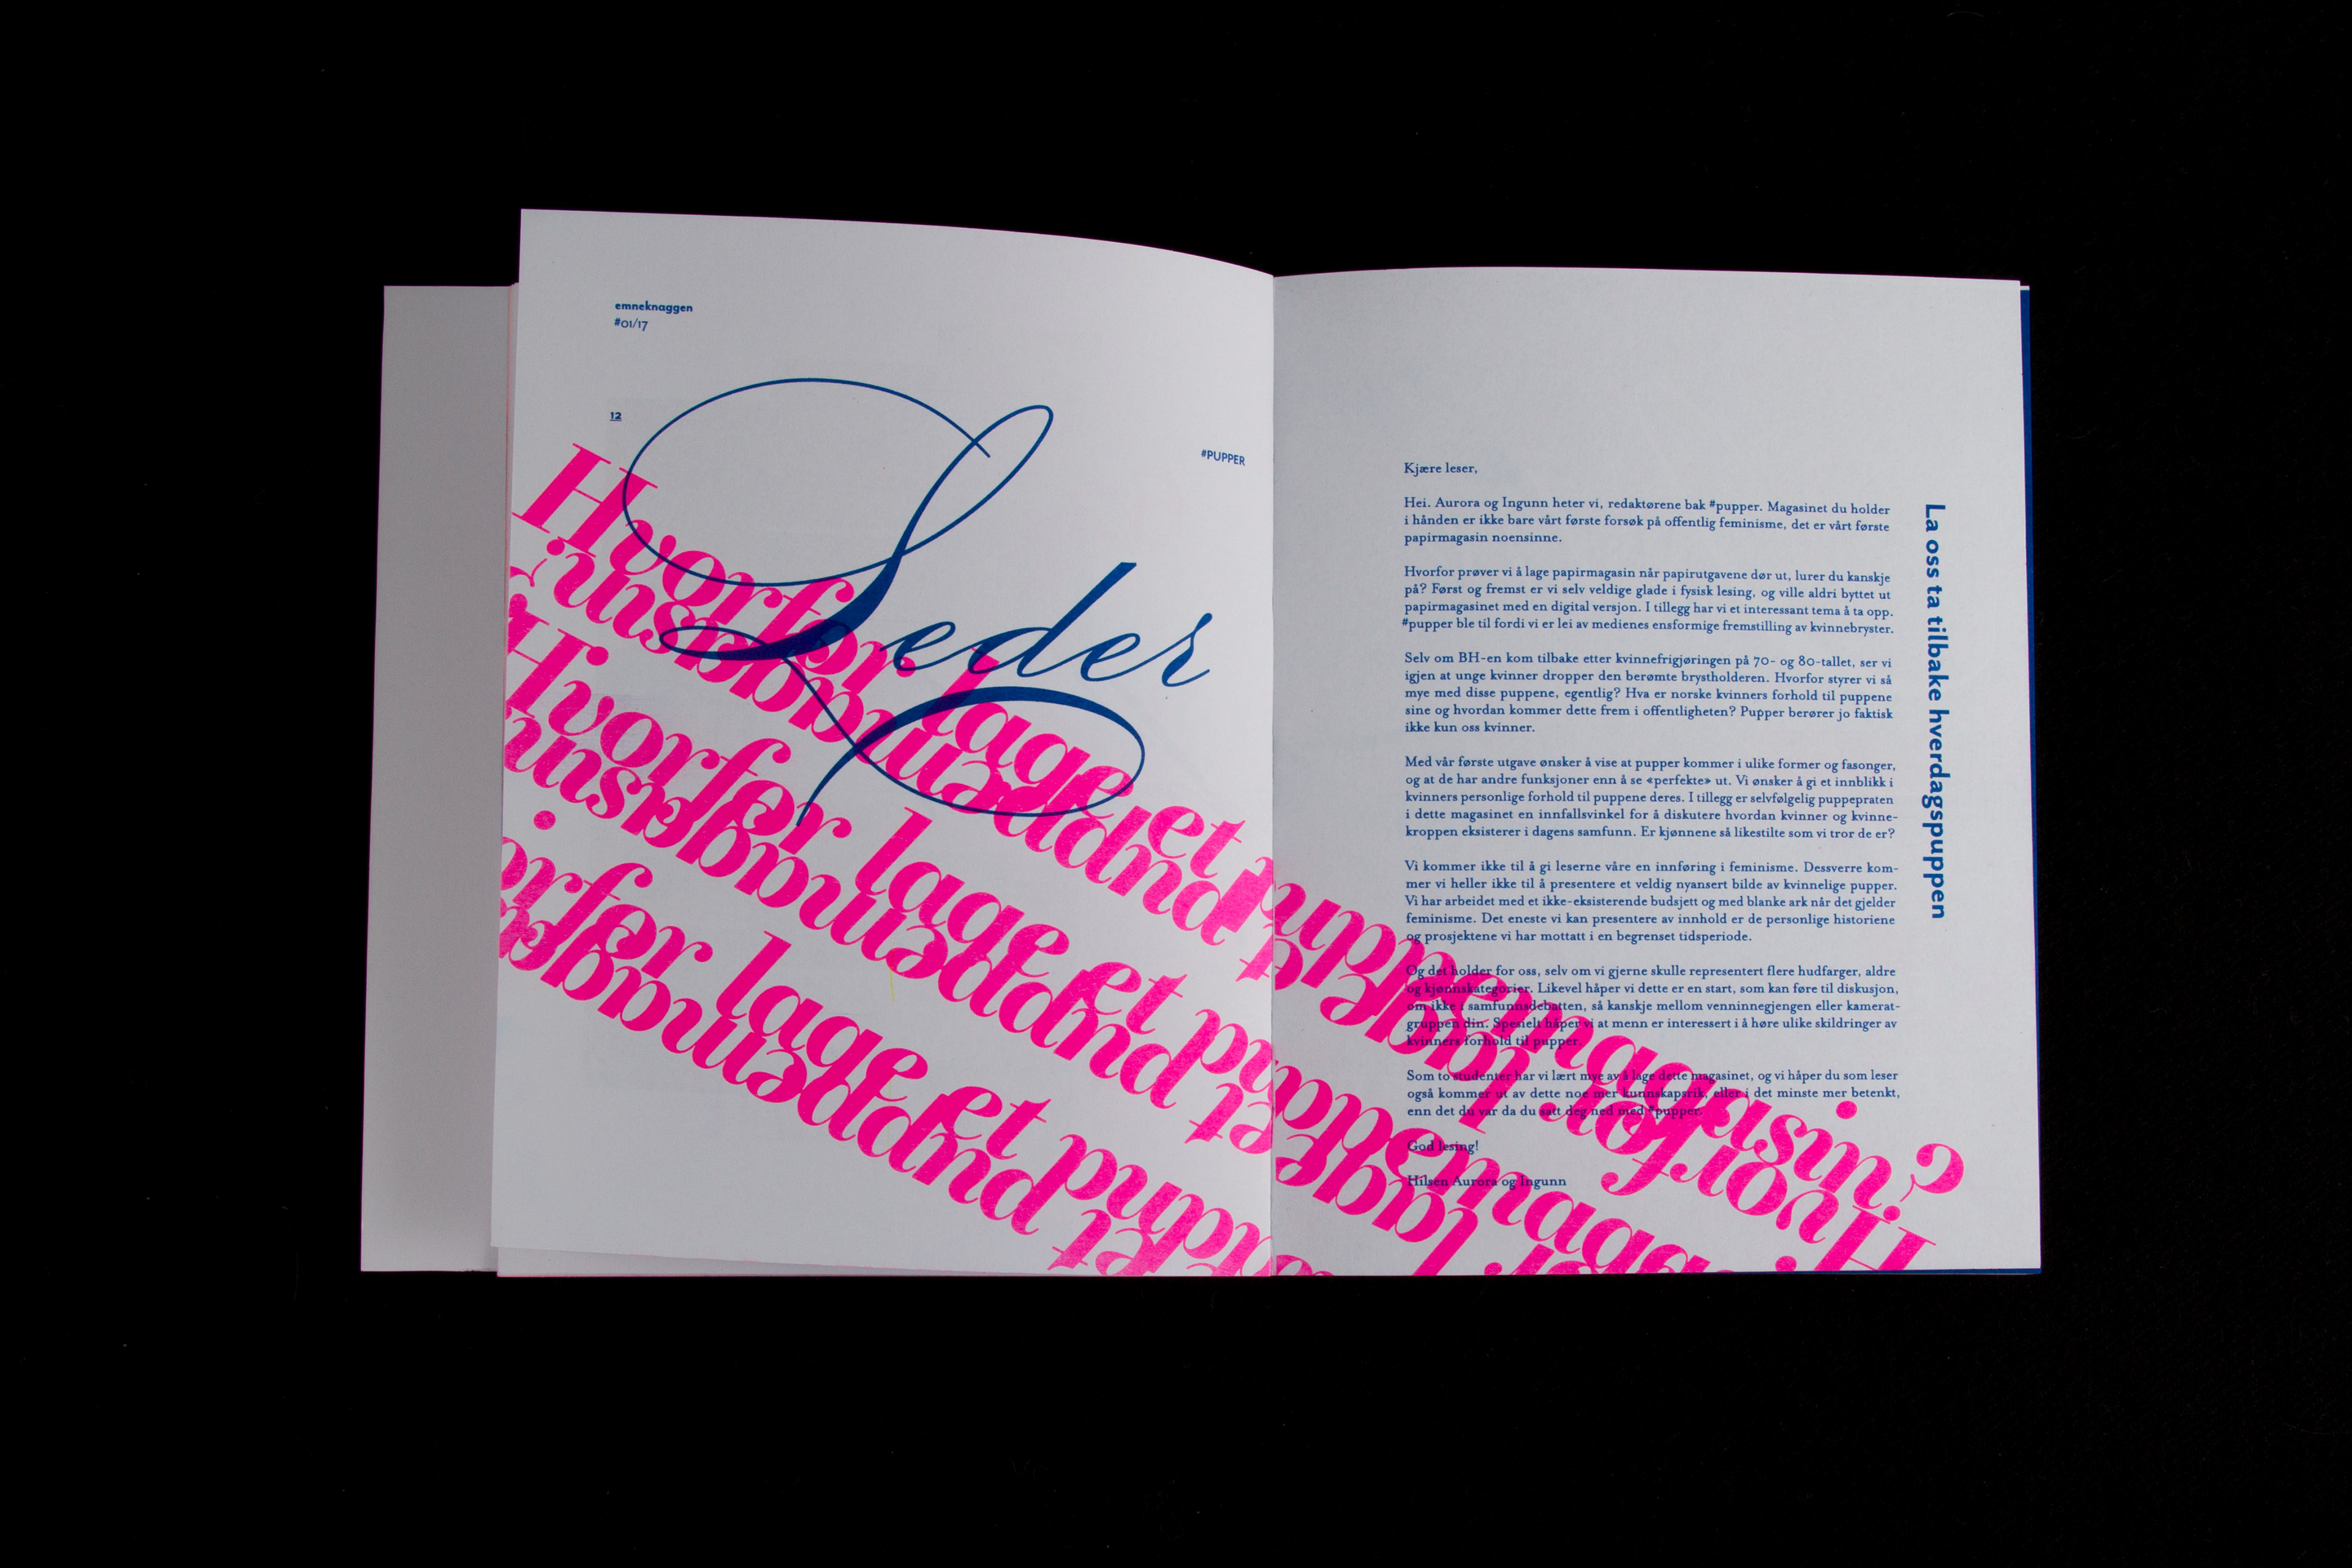 emneknaggen
#01/17
12
Leder
#PUPPER
Hvorfor lage et puppemagasin?
Hvorfor lage et puppemagasin?
Hvorfor lage et puppemaga
magasin?
orfor lage et puppe
Kjære leser,
Hei. Aurora og Ingunn heter vi, redaktørene bak #pupper. Magasinet du holder
i hånden er ikke bare vårt første forsøk på offentlig feminisme, det er vårt første
papirmagasin noensinne.
Hvorfor prøver vi å lage papirmagasin når papirutgavene dør ut, lurer du kanskje
på? Først og fremst er vi selv veldige glade i fysisk lesing, og ville aldri byttet ut
papirmagasinet med en digital versjon. I tillegg har vi et interessant tema å ta opp.
#pupper ble til fordi vi er lei av medienes ensformige fremstilling av kvinnebryster.
Selv om BH-en kom tilbake etter kvinnefrigjøringen på 70- og 80-tallet, ser vi
igjen at unge kvinner dropper den berømte brystholderen. Hvorfor styrer vi så
mye med disse puppene, egentlig? Hva er norske kvinners forhold til puppene
sine og hvordan kommer dette frem i offentligheten? Pupper berører jo faktisk
ikke kun oss kvinner.
Med vår første utgave ønsker å vise at pupper kommer i ulike former og fasonger,
og at de har andre funksjoner enn å se «perfekte» ut. Vi ønsker å gi et innblikk i
kvinners personlige forhold til puppene deres. I tillegg er selvfølgelig puppepraten
i dette magasinet en innfallsvinkel for å diskutere hvordan kvinner og kvinne-
kroppen eksisterer i dagens samfunn. Er kjønnene så likestilte som vi tror de er?
Vi kommer ikke til å gi leserne våre en innføring i feminisme. Dessverre kom-
mer vi heller ikke til å presentere et veldig nyansert bilde av kvinnelige pupper.
Vi har arbeidet med et ikke-eksisterende budsjett og med blanke ark når det gjelder
feminisme. Det eneste vi kan presentere av innhold er de personlige historiene
og prosjektene vi har mottatt i en begrenset tidsperiode.
Og det holder for oss, selv om vi gjerne skulle representert flere hudfarger, aldre
og kjønnskategorier. Likevel håper vi dette er en start, som kan føre til diskusjon,
om ikke i samfunnsdebatten, så kanskje mellom venninnegjengen eller kamerat-
gruppen din. Spesielt håper vi at menn er interessert i å høre ulike skildringer av
kvinners forhold til pupper.
Som to studenter har vi lært mye av å lage dette magasinet, og vi håper du som leser
også kommer ut av dette noe mer kunnskapsrik, eller i det minste mer betenkt,
enn det du var da du satt deg ned med #pupper.
God lesing!
Hilsen Aurora og Ingunn
La oss ta tilbake hverdagspuppen